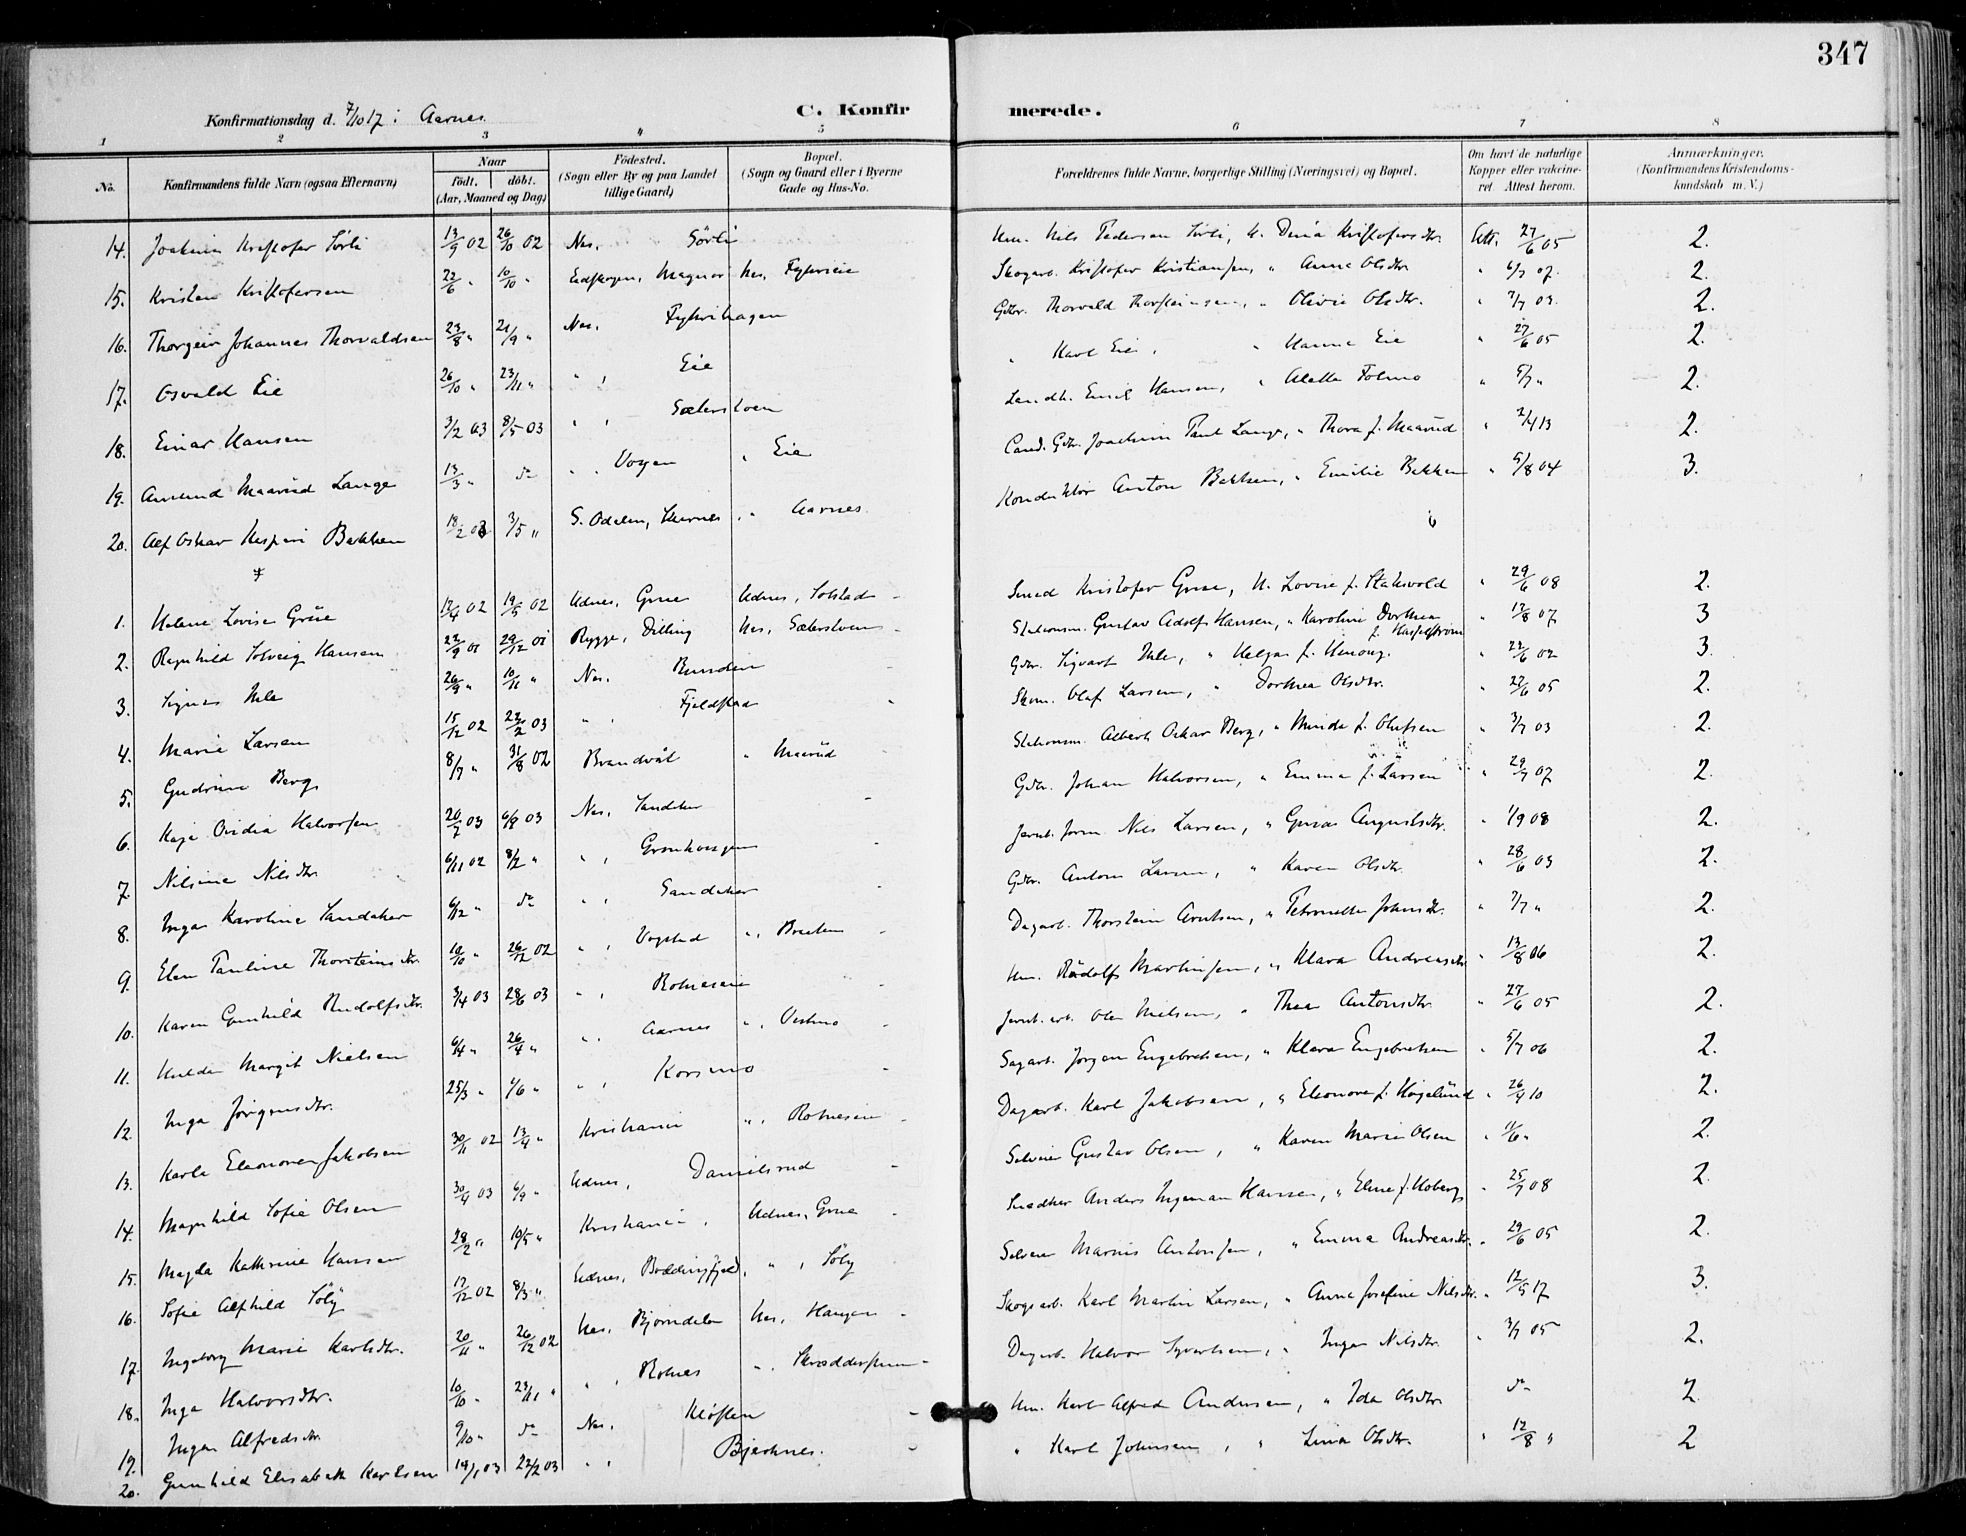 347
Konfirmationsdag d. 7/10 17 i Aarnes.
C. Konfirmerede.
1 2 3 4 5 6 7 8
No. Konfirmandens fulde Navn (ogsaa Efternavn) Naar födt. döbt. (Aar, Maaned og Dag) Födested. (Sogn eller By og paa Landet tillige Gaard) Bopæl. (Sogn og Gaard eller i Byerne Gade og Hus-No. Forældrenes fulde Navne, borgerlige Stilling (Næringsvei) og Bopæl. Om havt de naturlige Kopper eller vakcineret. Attest herom. Anmærkninger. (Konfirmandens Kristendomskundskab m. V.)
14. Joakim Kristofer Sörli 13/9 02 26/10 02 Nes. Sörli Um. Nils Pedersen Sörli, H. Dina Kristofersdtr. Att. 27/6 05 2.
15. Kristen Kristofersen 22/6 " 10/10 " Eidskogen, Magnor Nes, Fykrieie Skogarb. Kristofer Kristiansen, " Anna Olsdtr " 6/7 07. 2.
16. Thorgeir Johannes Thorvaldsen 23/8 " 21/9 " Nes. Fykrihagen Gdbr. Thorvald Thorsteinsen, " Olivia Olsdtr. " 7/7 03. 2.
17. Osvald Eie 26/10 " 23/11 " " , Eie " Karl Eie, " Hanna Eie " 27/6 05 2.
18. Einar Hansen 3/2 03 8/5 03 " , Sæterstoen Landh. Emil Hansen, " Alette Tolmo " 5/7 " 2.
19. Amund Maarud Lange 13/3 " do " , Vogen " Eie Cand. Gdbr. Joachim Paul Lange, " Thora f. Maarud " 2/4 13 2.
20. Alf Oskar Kaspari Bakken 18/2 03 3/5 " S. Odalen, Skarnes " Aarnes. Konduktör Anton Bakken, " Emilie Bakken " 5/8 04 3.
1. Helene Lovise Grue 12/4 02 19/5 02 Udnes, Grue Udnes, Solstad Smed Kristofer Grue, H. Lovise f. Staksvold " 29/6 08 2.
2. Ragnhild Solveig Hansen 22/9 01 29/12 01 Rygge, Dilling Nes, Sæterstoen Stationsm. Gustav Adolf Hansen, " Karoline Dorthea f. Haspelstrøm " 12/8 07 3
3. Signe Ihle 26/9 " 10/11 " Nes. Runden Gdbr. Sigvart Ihle, " Helga f. Henong. " 22/6 02 3.
4. Marie Larsen 15/12 02 22/2 03 " , Fjeldstad Skom. Olaf Larsen, " Dorthea Olsdtr. " 27/6 05 2.
5. Gudrun Berg 8/7 " 31/8 02 Brandval " Maarud Stationsm. Albert Oskar Berg, " Minda f. Olufsen " 3/7 03 2.
6. Kaja Ovidia Halvorsen 20/7 03 6/9 03 Nes, Sandaker Gdbr. Johan Halvorsen, " Emma f. Larsen " 29/7 07 2.
7. Nilsine Nilsdtr. 6/11 02 8/2 " " , Grønhaugen Jernb. form. Nils Larsen, " Gusta Augustsdtr. " 1/9 08 2.
8. Inga Karoline Sandaker 6/12 " do " , Sandaker Gdbr. Anton Larsen, " Karen Olsdtr. " 28/6 03 2.
9. Elen Pauline Thorsteinsdtr. 19/10 " 26/12 02 " , Vogstad ", Braaten Dagarb. Thorstein Arntsen, " Petronelle Johnsdtr. " 7/7 " 2.
10. Karen Gunhild Rudolfsdtr. 3/4 03 28/6 03 " , Rotneseie Um. Rudolf Martinsen, " Klara Andreasdtr. " 13/8 06 2.
11. Hulda Margit Nielsen 6/4 " 26/4 " " , Aarnes ", Vestmo Jernb. arb. Ole Nielsen, " Thea Antonsdtr. " 27/6 05 2.
12. Inga Jörgensdtr. 25/3 " 1/6 " " , Korsmo Sagarb. Jørgen Engebretsen, " Klara Engebretsen " 5/7 06 2.
13. Karla Eleonora Jakobsen 30/11 02 13/4 " Kristiania ", Rotneseie Dagarb. Karl Jakobsen, " Eleonora f. Høgelund " 26/4 10 2.
14. Magnhild Sofie Olsen 30/4 03 6/9 " Udnes, Danielsrud Selveier Gustav Olsen, " Karen Marie Olsen " 11/6 " 2.
15. Magda Kathrine Hansen 28/2 " 10/5 " Kristiania, Udnes, Grue Snedker Anders Ingeman Hansen, " Eline f. Hoberg " 25/7 08 2.
16. Sofie Alfhild Söby 17/12 02 8/3 " Udnes, Boddingfjeld, " , Söby Selveier Marius Antonsen, " Emma Andreasdtr. " 29/6 05 2.
17. Ingeborg Marie Karlsdtr. 20/11 " 26/12 02 Nes. Bjørndalen Nes, Haugen Skogsarb. Karl Martin Larsen, " Anna Josefine Nilsdtr. " 12/5 17 3.
18. Inga Halvorsdtr. 10/10 " 23/11 " " , Rotnes ", Skrædderstuen Dagarb. Halvor Syvertsen, " Inga Nilsdtr. " 3/7 05 2.
19. Inga Alfredsdtr. 9/10 " do Nes. Kløften Um. Karl Alfred Andersen, " Ida Olsdtr. do 2.
20. Gunhild Elisabeth Karlsen 14/1 03 22/2 03 " , Bjerknes. " Karl Johnsen, " Lina Olsdtr. " 12/8 " 2